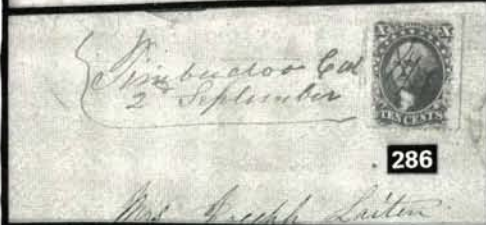 Timbuctoo Cal
2d September
X X
TEN CENTS
286
Mrs Joseph Laiten